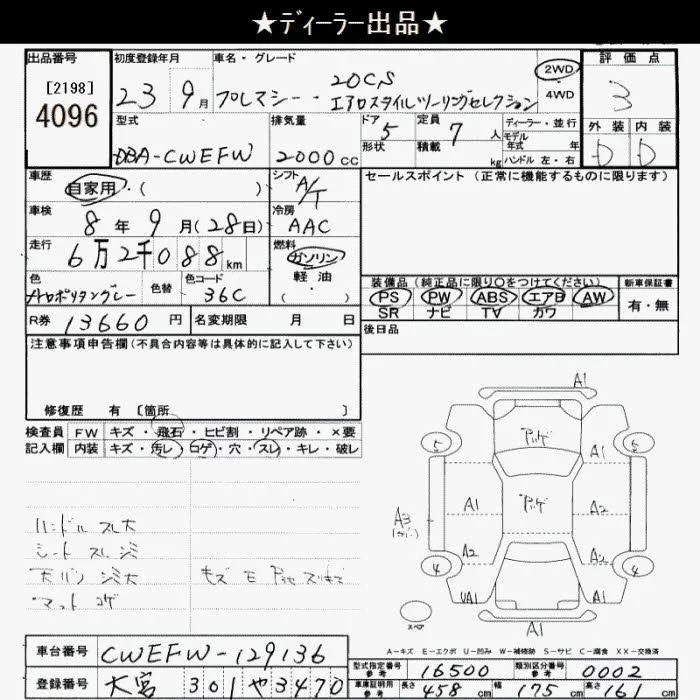 ★ディーラー出品★
出品番号
[2198]
4096
初度登録年月
23 9月
車名・グレード
20CS
プレマシー・エアロスタイルツーリングセレクション
2WD
4WD
評価点
3
外装 内装
D D
型式
DBA-CWEFW
排気量
2000cc
ドア 5
形状
定員 7人
積載 kg
ディーラー・並行
モデル
年式 年
ハンドル 左・右
車歴
自家用・( )
車検
8年9月(28日)
走行
6万2千088km
シフト
A/T
冷房
AAC
燃料
ガソリン
軽・油
( ・ )
色
メトロポリタングレー
色替
色コード
36C
R券 13660円
名変期限 月 日
セールスポイント(正常に機能するものに限ります)
装備品(純正品に限り○をつけてください)
PS PW ABS エアB AW
SR ナビ TV カワ
新車保証書
有・無
後日品
注意事項申告欄(不具合内容等は具体的に記入して下さい)
修復歴 有 〔箇所 〕
検査員
記入欄
FW キズ・飛石・ヒビ割・リペア跡・×要
内装 キズ・汚レ・コゲ・穴・スレ・キレ・破レ
ハンドル スレ大
シート スレ 汚
天バリ 汚大
マット コゲ
A1
5 5
A1
A1 A2
A3
(カバー)
A2 A2
4 4
UA1 A1
A1
スペア
A-キズ E-エクボ U-凹み W-補修跡 S-サビ C-腐食 XX-交換済
車台番号 CWEFW-129136
登録番号 大宮 301 や 3470
型式指定番号
参考
16500
類別区分番号
参考
0002
車庫証明用
参考
長さ 458cm 幅 175cm 高さ 161cm